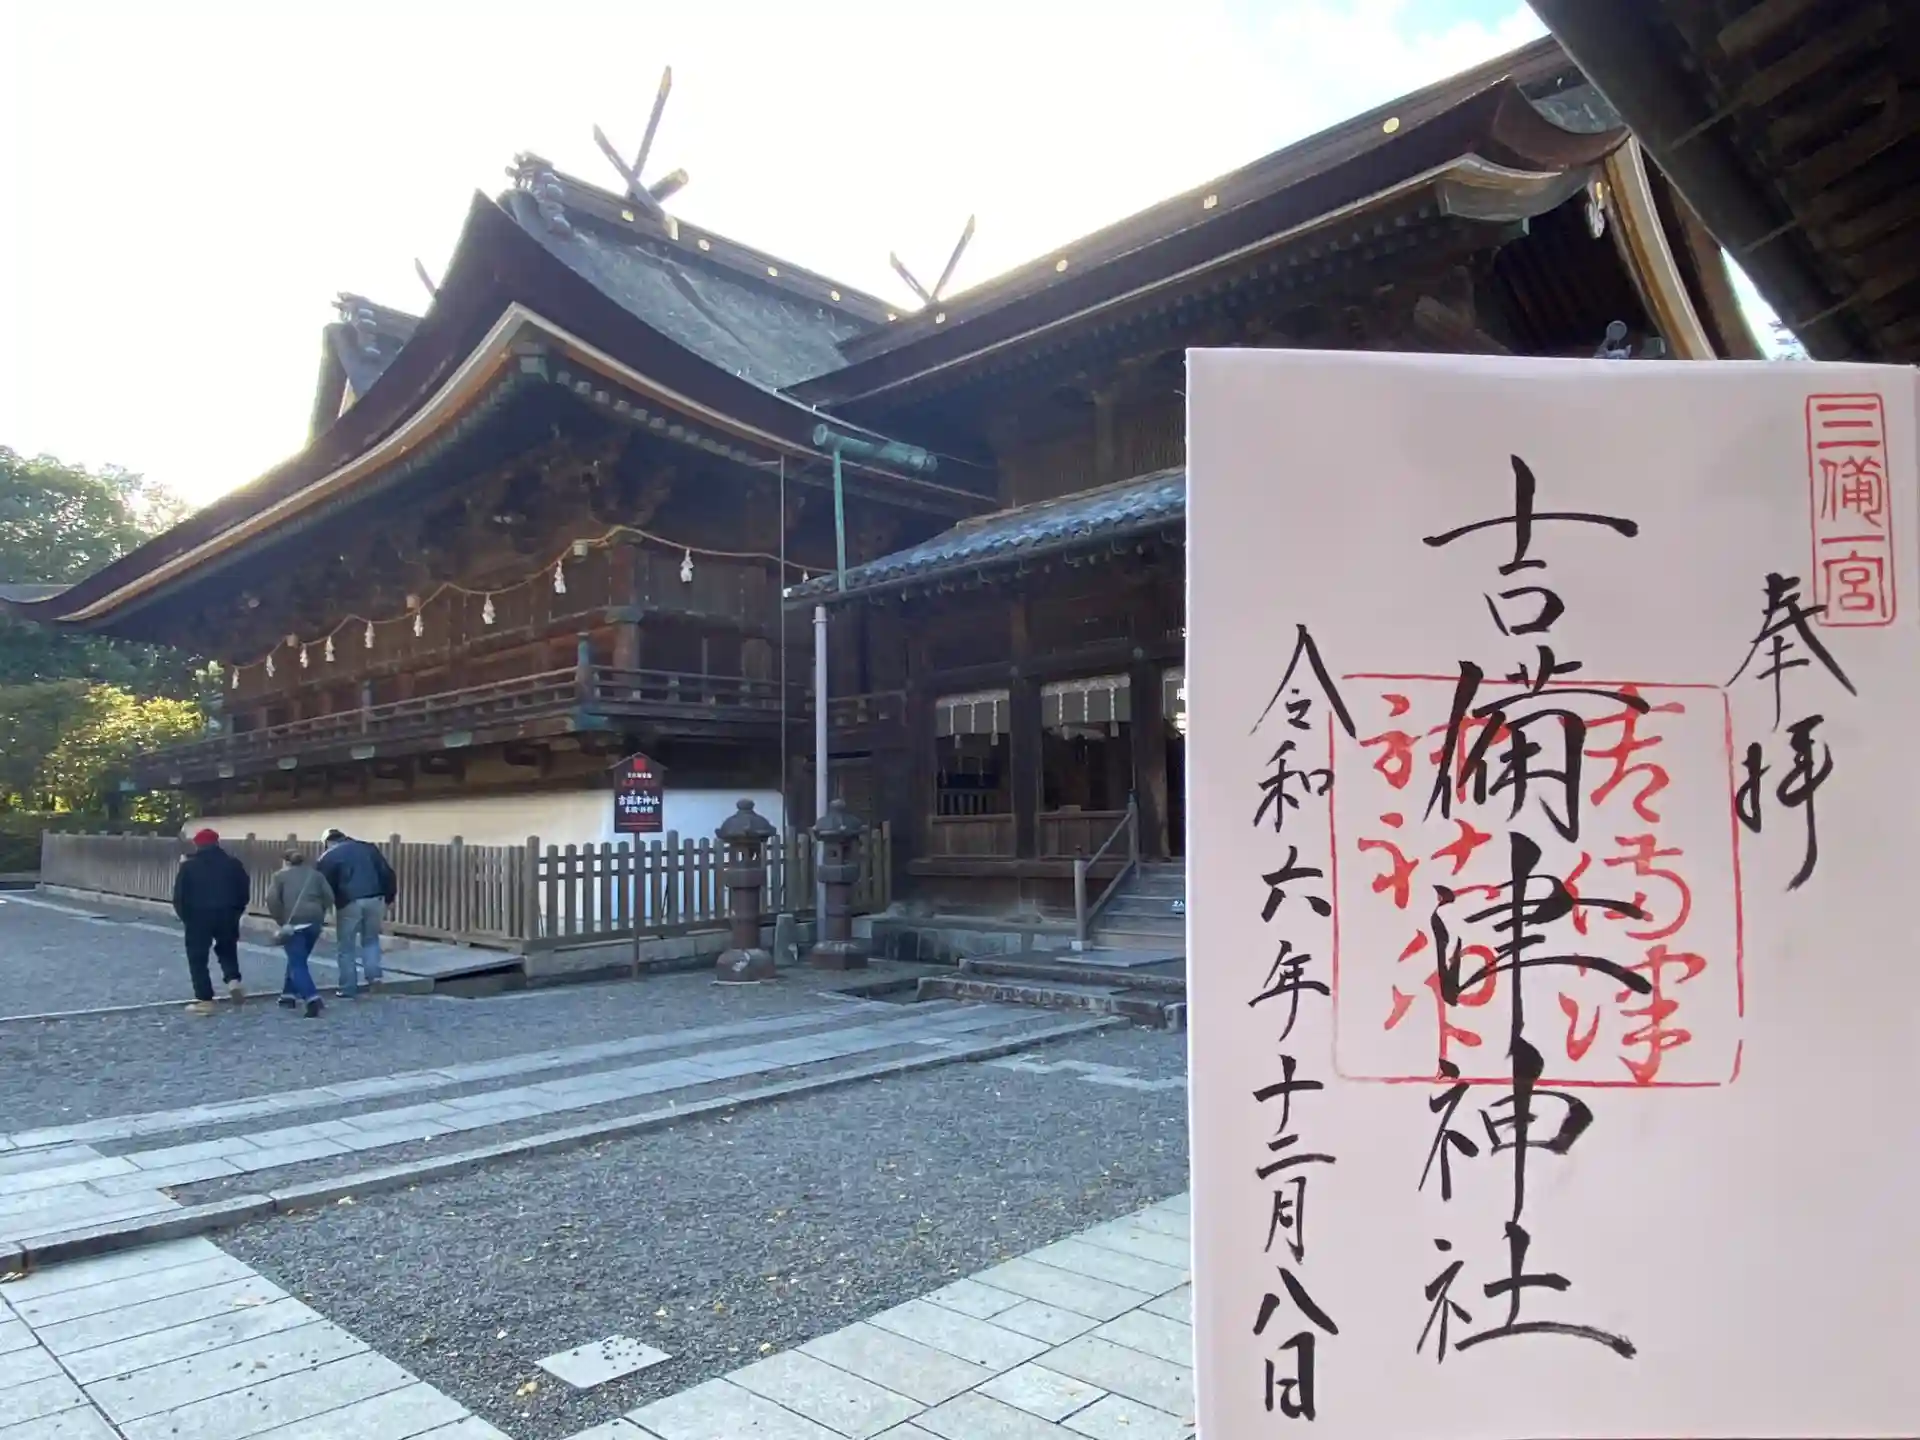 三備一宮
奉拝
吉備津神社
令和六年十二月八日
吉備津神社